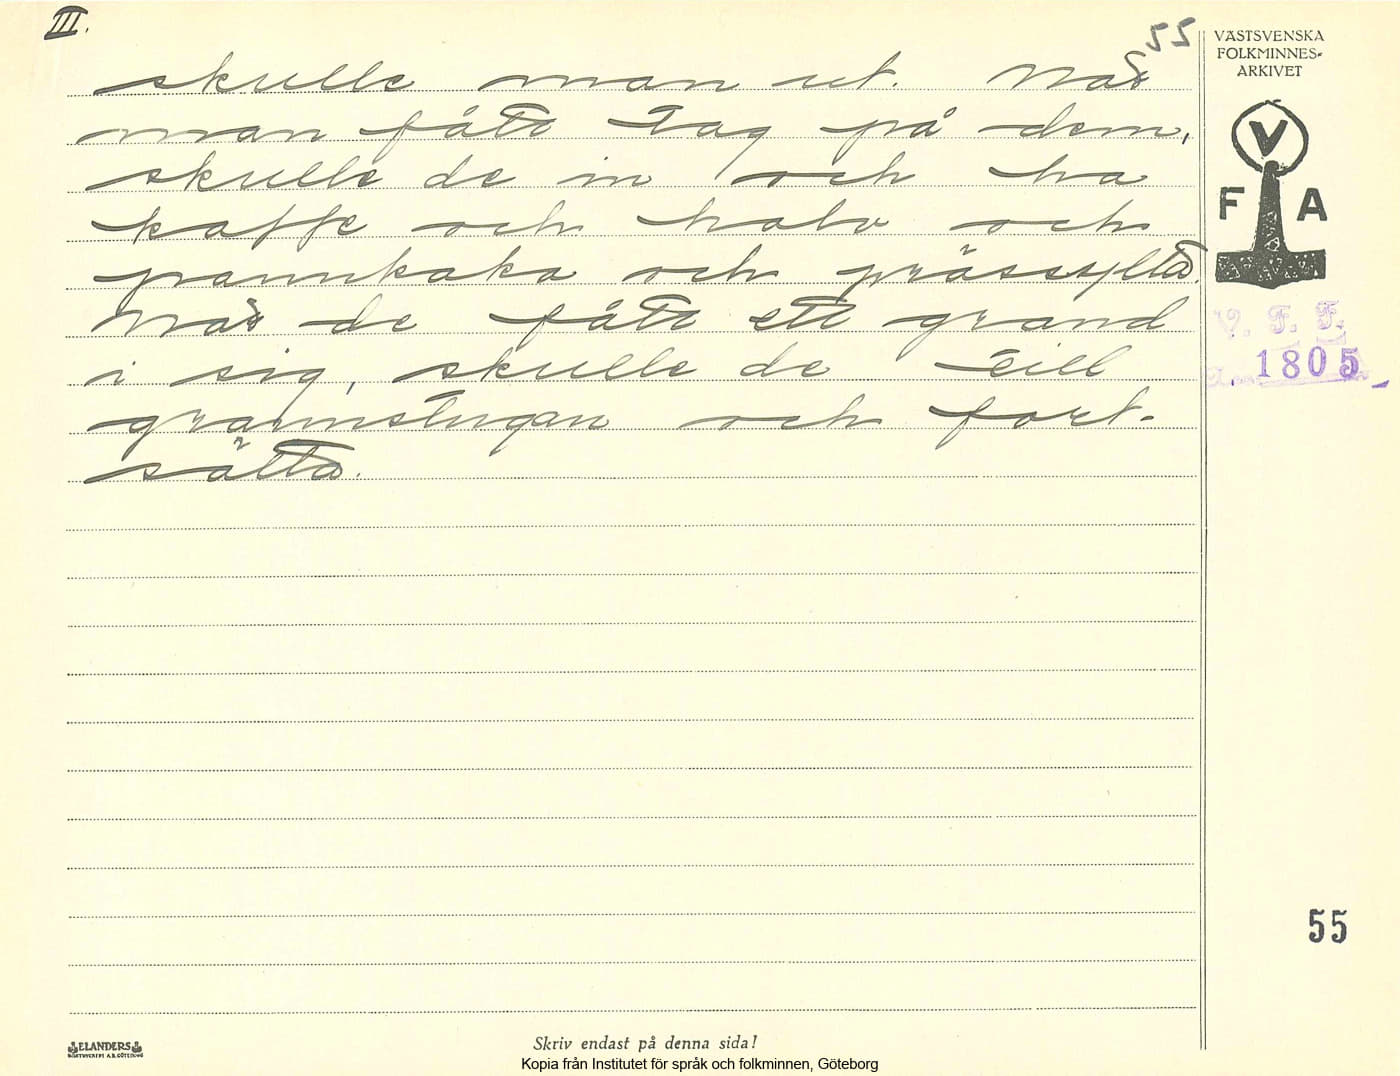 III.
55
VÄSTSVENSKA
FOLKMINNES-
ARKIVET
V
F A
skulle man ut. När
man fått tag på dem,
skulle de in och ha
kaffe och halv och
pannkaka och prässylta.
När de fått ett grand
i sig, skulle de till
grannstugan och fort-
sätta.
V. F. F.
1805
55
ELANDERS
Skriv endast på denna sida!
Kopia från Institutet för språk och folkminnen, Göteborg